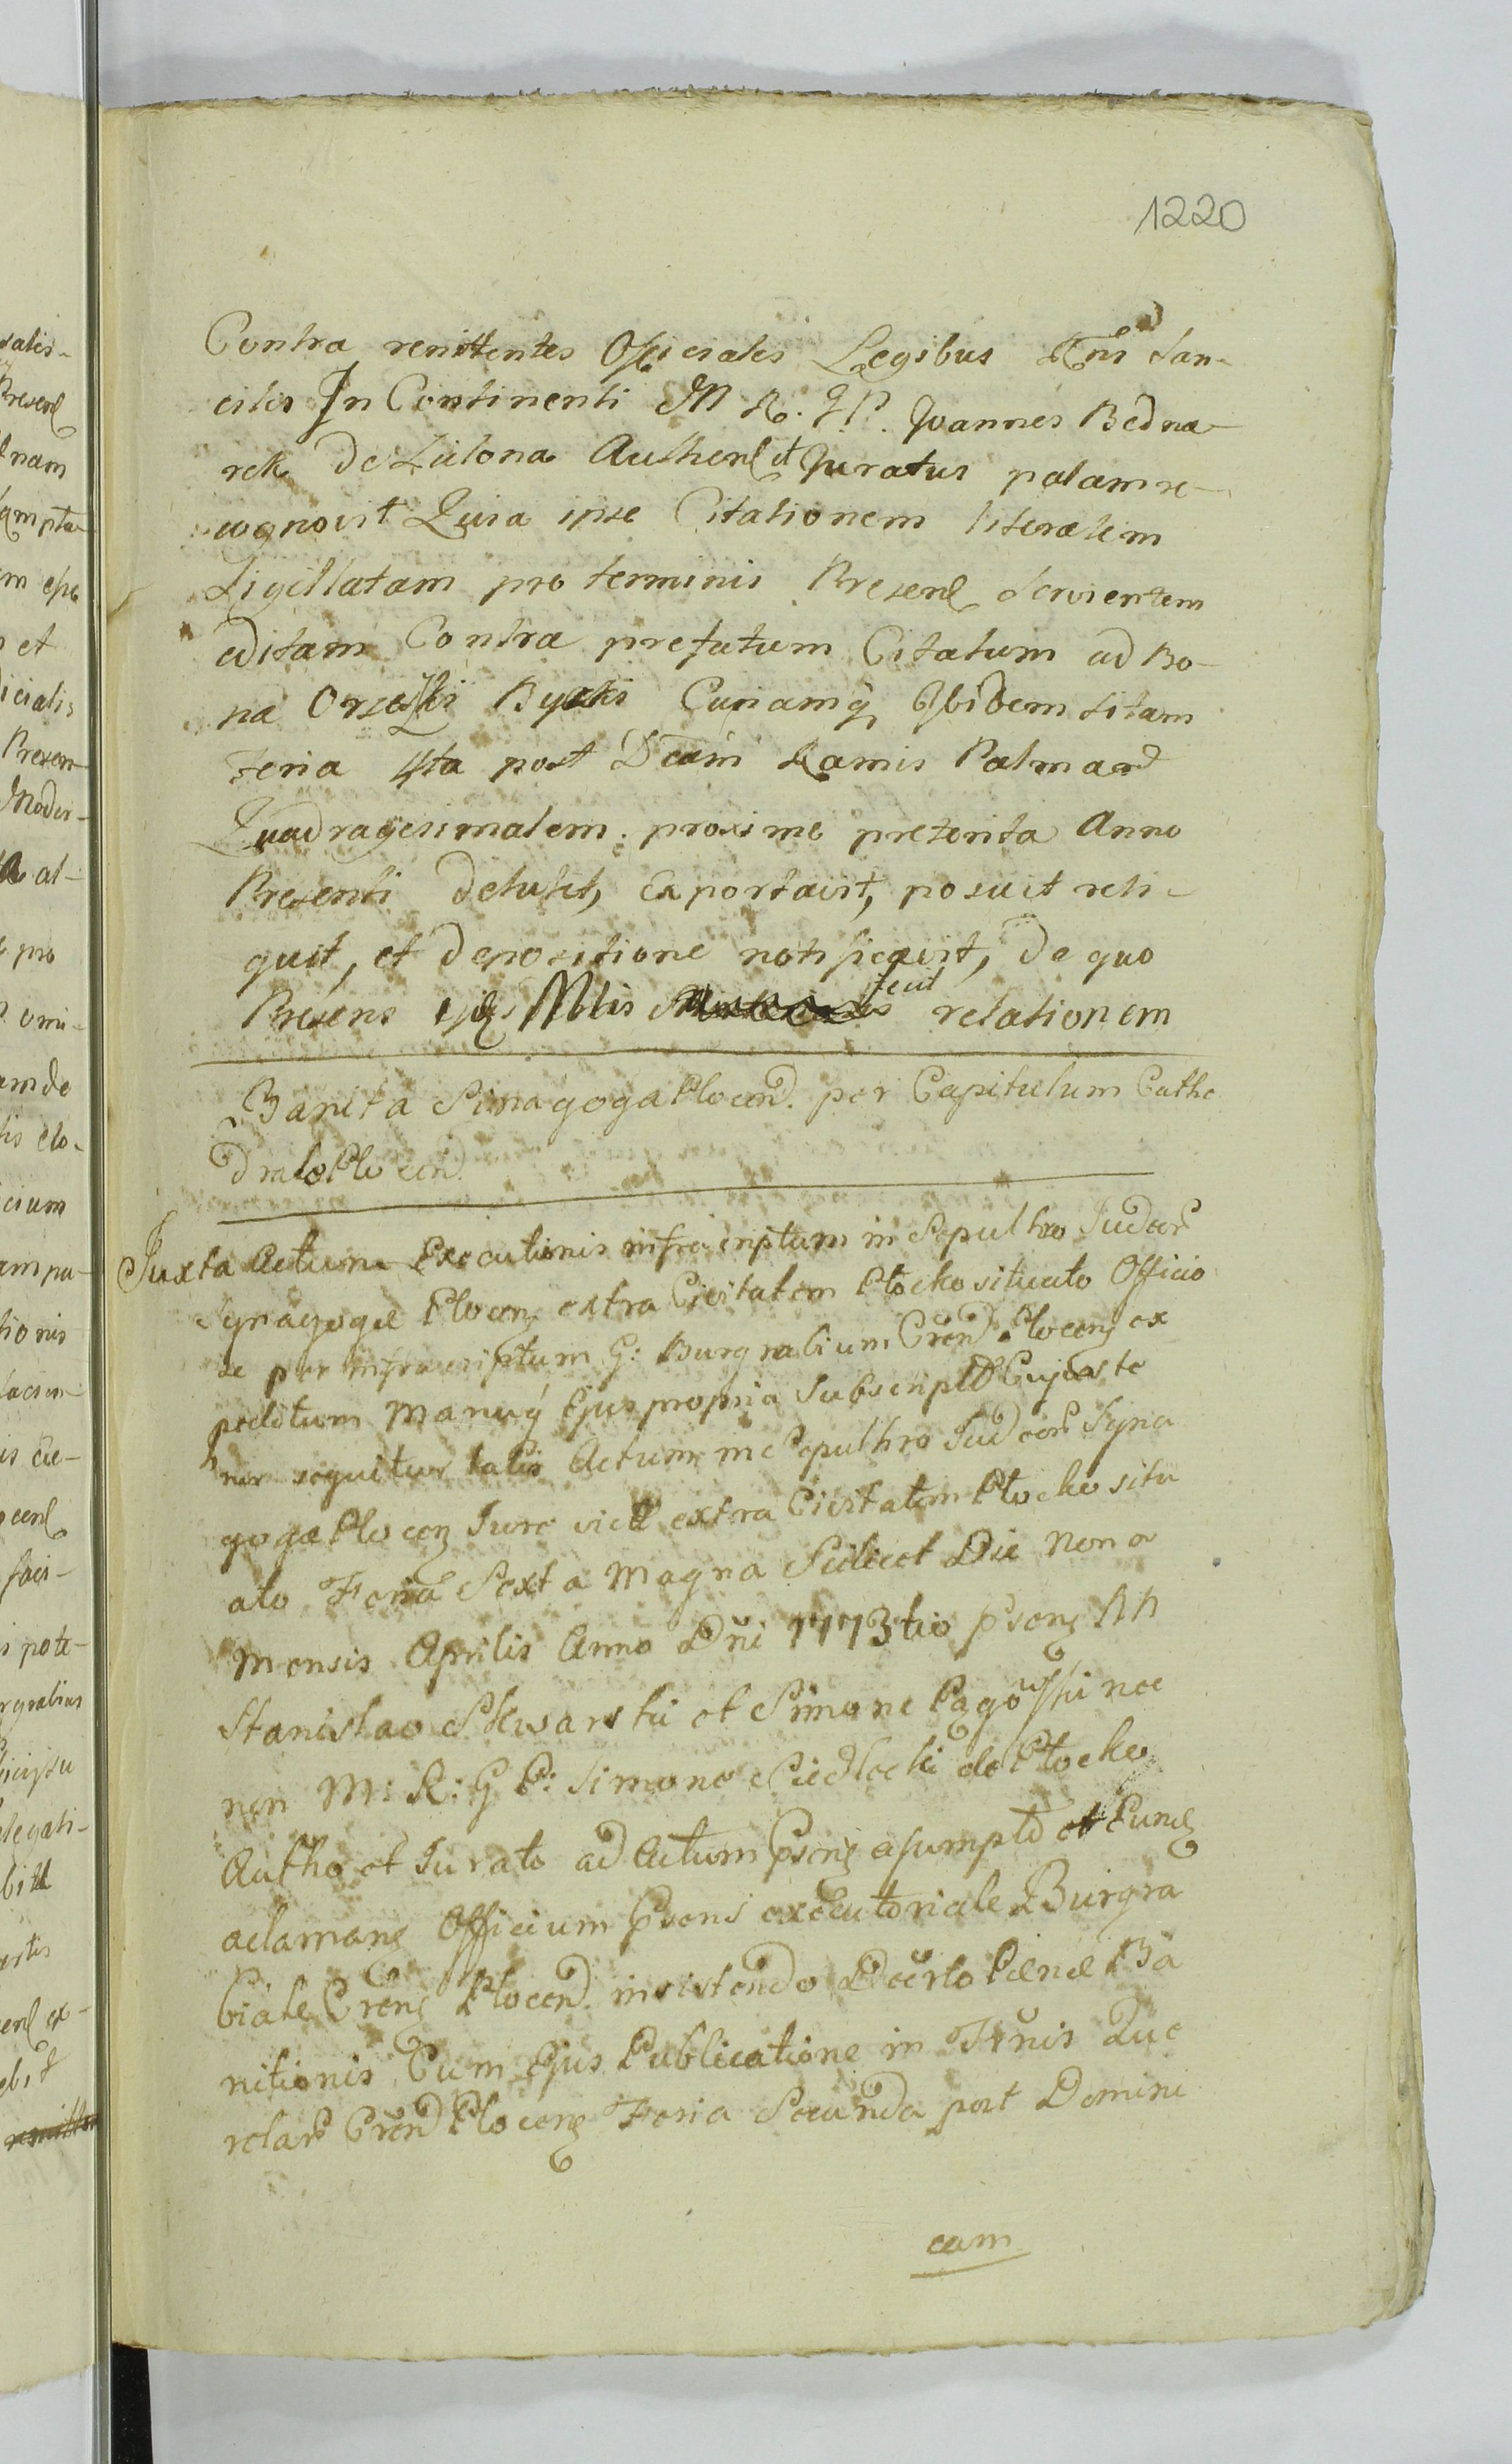 1220
Contra renittentes Officiales Legibus Rni San-
citis In Continenti M R. G. P. Joannes Bedna-
rek De Lutona Authen et Juratus palam re-
cognovit Quia ipse Citationem literalem
Sigillatam pro terminis Presen servientem
editam Contra prefatum Citatum ad Bo-
na Orzeski Bycki Curiamq Ibidem sitam
Feria 4ta post Dcam Ramis Palmar
Quadragesimalem proxime preterita Anno
Presenti detulit, exportavit, posuit reli-
quit, et depositione notificavit, de quo
Presens ejus Mlis fecit relationem
Banita Sinagoga Plocen. per Capitulum Cathe
drale Plocen
Juxta Actum Executionis infrascriptum in Sepulthro Judeor
Synagogæ Plocen extra Civitatem Plocko situato Officio
se per infrascriptum G: Burgrabium Cren Plocen ex
peditum manuq Ejus propria Subscript Cujus te
nor sequitur talis Actum in Sepulthro Judeor Syna
gogæ Plocen Jure vict extra Civitatem Plocko situ
ato Feria Sexta Magna Scilicet Die Nona
Mensis Aprilis Anno Dni 1773tio psen NN
Stanislao Skwarski et Simone Pagowski nec
non M: R: G P: Simone Siedlecki de Plocko
Autho et Jurato ad Actum Psens assumptis et Eund
aclaman Officium Psens executoriale Burgra
biale Cren Plocen insistendo Decrto Pænæ Ba
nitionis Cum Ejus Publicatione in Trnis Que
relar Cren Plocen Feria Secunda post Domini
cam